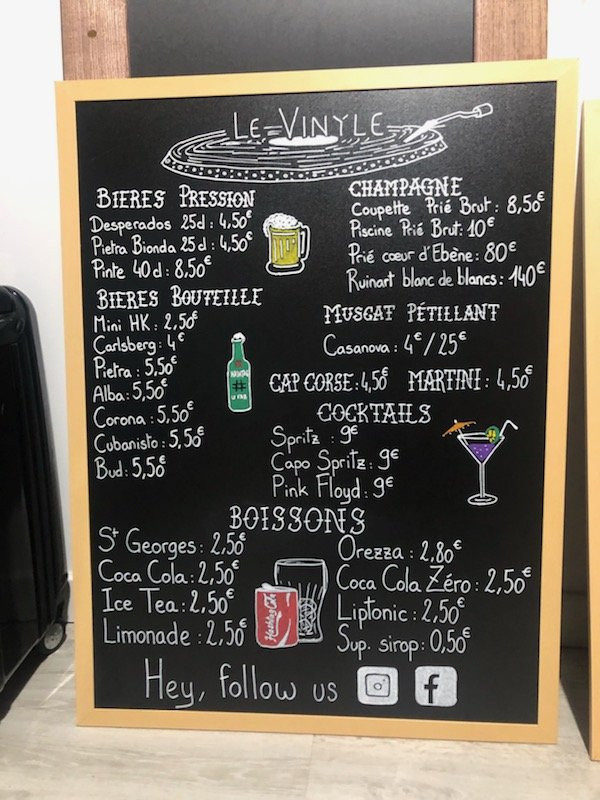 LE VINYLE
BIERES PRESSION
Desperados 25d : 4,50€
Pietra Bionda 25d : 4,50€
Pinte 40d : 8,50€
BIERES BOUTEILLE
Mini HK : 2,50€
Carlsberg : 4€
Pietra : 5,50€
Alba : 5,50€
Corona : 5,50€
Cubanisto : 5,50€
Bud : 5,50€
CHAMPAGNE
Coupette Prié Brut : 8,50€
Piscine Prié Brut : 10€
Prié cœur d'Ebène : 80€
Ruinart blanc de blancs : 140€
MUSCAT PÉTILLANT
Casanova : 4€/25€
CAP CORSE : 4,50€ MARTINI : 4,50€
COCKTAILS
Spritz : 9€
Capo Spritz : 9€
Pink Floyd : 9€
#
BOISSONS
St Georges : 2,50€
Coca Cola : 2,50€
Ice Tea : 2,50€
Limonade : 2,50€
Orezza : 2,80€
Coca Cola Zéro : 2,50€
Liptonic : 2,50€
Sup. sirop : 0,50€
Hey, follow us